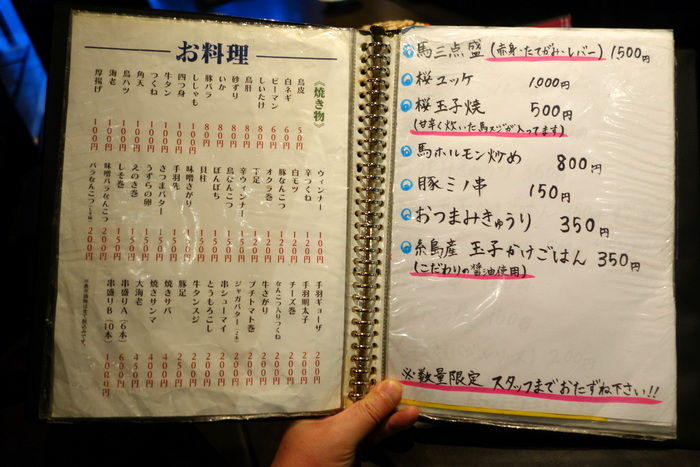 お料理
《焼き物》
鳥皮 50円
白ネギ 60円
ピーマン 60円
しいたけ 80円
鳥肝 80円
砂ずり 80円
いか 80円
豚バラ 80円
ししゃも 100円
四つ身 100円
牛タン 100円
つくね 100円
角天 100円
鳥ハツ 100円
海老 100円
厚揚げ 100円
ウィンナー 100円
辛つくね 120円
白モツ 120円
豚なんこつ 120円
オクラ巻 120円
下足 120円
辛ウィンナー 120円
鳥なんこつ 120円
ぼんぼち 120円
貝柱 150円
味噌さがり 150円
手羽先 150円
さつまバター 150円
うずらの卵 150円
えのき巻 150円
しそ巻 150円
味噌バラなんこつ 200円
バラなんこつ 200円
手羽ギョーザ 200円
手羽明太子 200円
チーズ巻 200円
なんこつ入りつくね 200円
牛さがり 200円
プチトマト巻 200円
ジャガバター 200円
串シューマイ 200円
とうもろこし 200円
牛タンスジ 200円
豚足 250円
焼きサバ 400円
焼きサンマ 400円
大海老 450円
串盛りA(6本) 600円
串盛りB(10本) 1000円
馬三点盛 (赤身・たてがみ・レバー) 1500円
桜ユッケ 1,000円
桜玉子焼 500円
(甘辛く炊いた馬スジが入ってます)
馬ホルモン炒め 800円
豚ミノ串 150円
おつまみきゅうり 350円
糸島産 玉子かけごはん 350円
(こだわりの醤油使用)
※数量限定 スタッフまでおたずね下さい!!